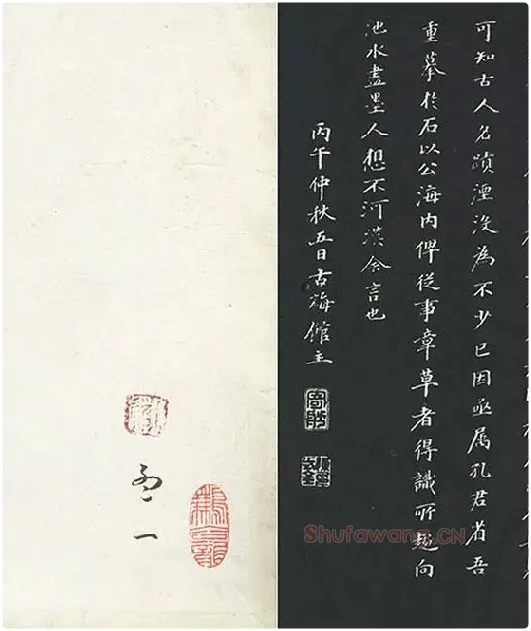 可知古人名蹟湮没為不少已因亟属孔君省吾
重摹於石以公海内俾從事章草者得識所趋向
池水盡墨人想不河漢余言也
丙午仲秋五日古海館主
Shufawang.CN
一